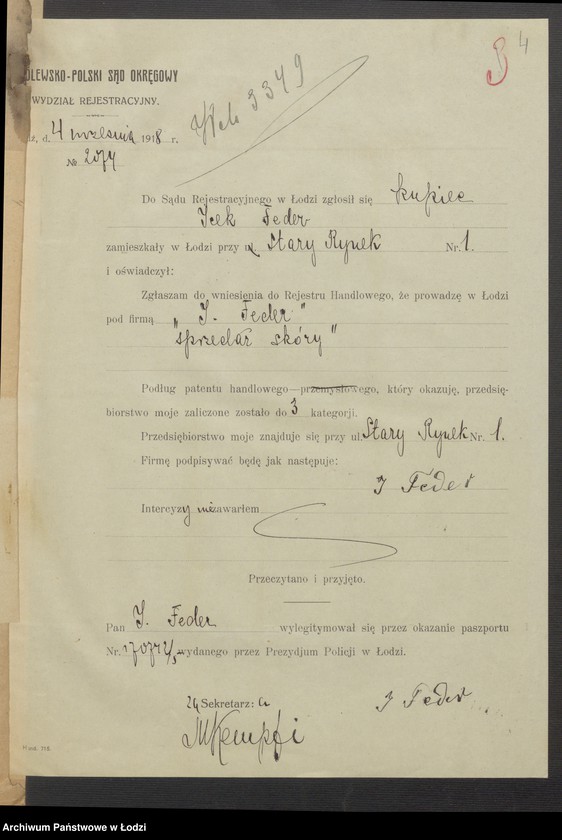 4
3
LEWSKO-POLSKI SĄD OKRĘGOWY
WYDZIAŁ REJESTRACYJNY.
3349
d. 4 września 1918 r.
№ 2074
Do Sądu Rejestracyjnego w Łodzi zgłosił się kupiec
Icek Feder
zamieszkały w Łodzi przy ul. Stary Rynek Nr. 1.
i oświadczył:
Zgłaszam do wniesienia do Rejestru Handlowego, że prowadzę w Łodzi
pod firmą „I. Feder"
„sprzedaż skóry"
Podług patentu handlowego—przemysłowego, który okazuję, przedsię-
biorstwo moje zaliczone zostało do 3 kategorji.
Przedsiębiorstwo moje znajduje się przy ul. Stary Rynek Nr. 1.
Firmę podpisywać będę jak następuje:
I Feder
Intercyzy nie zawarłem
Przeczytano i przyjęto.
Pan I. Feder wylegitymował się przez okazanie paszportu
Nr. wydanego przez Prezydjum Policji w Łodzi.
Sekretarz:
I Feder
MKempfi
Archiwum Państwowe w Łodzi